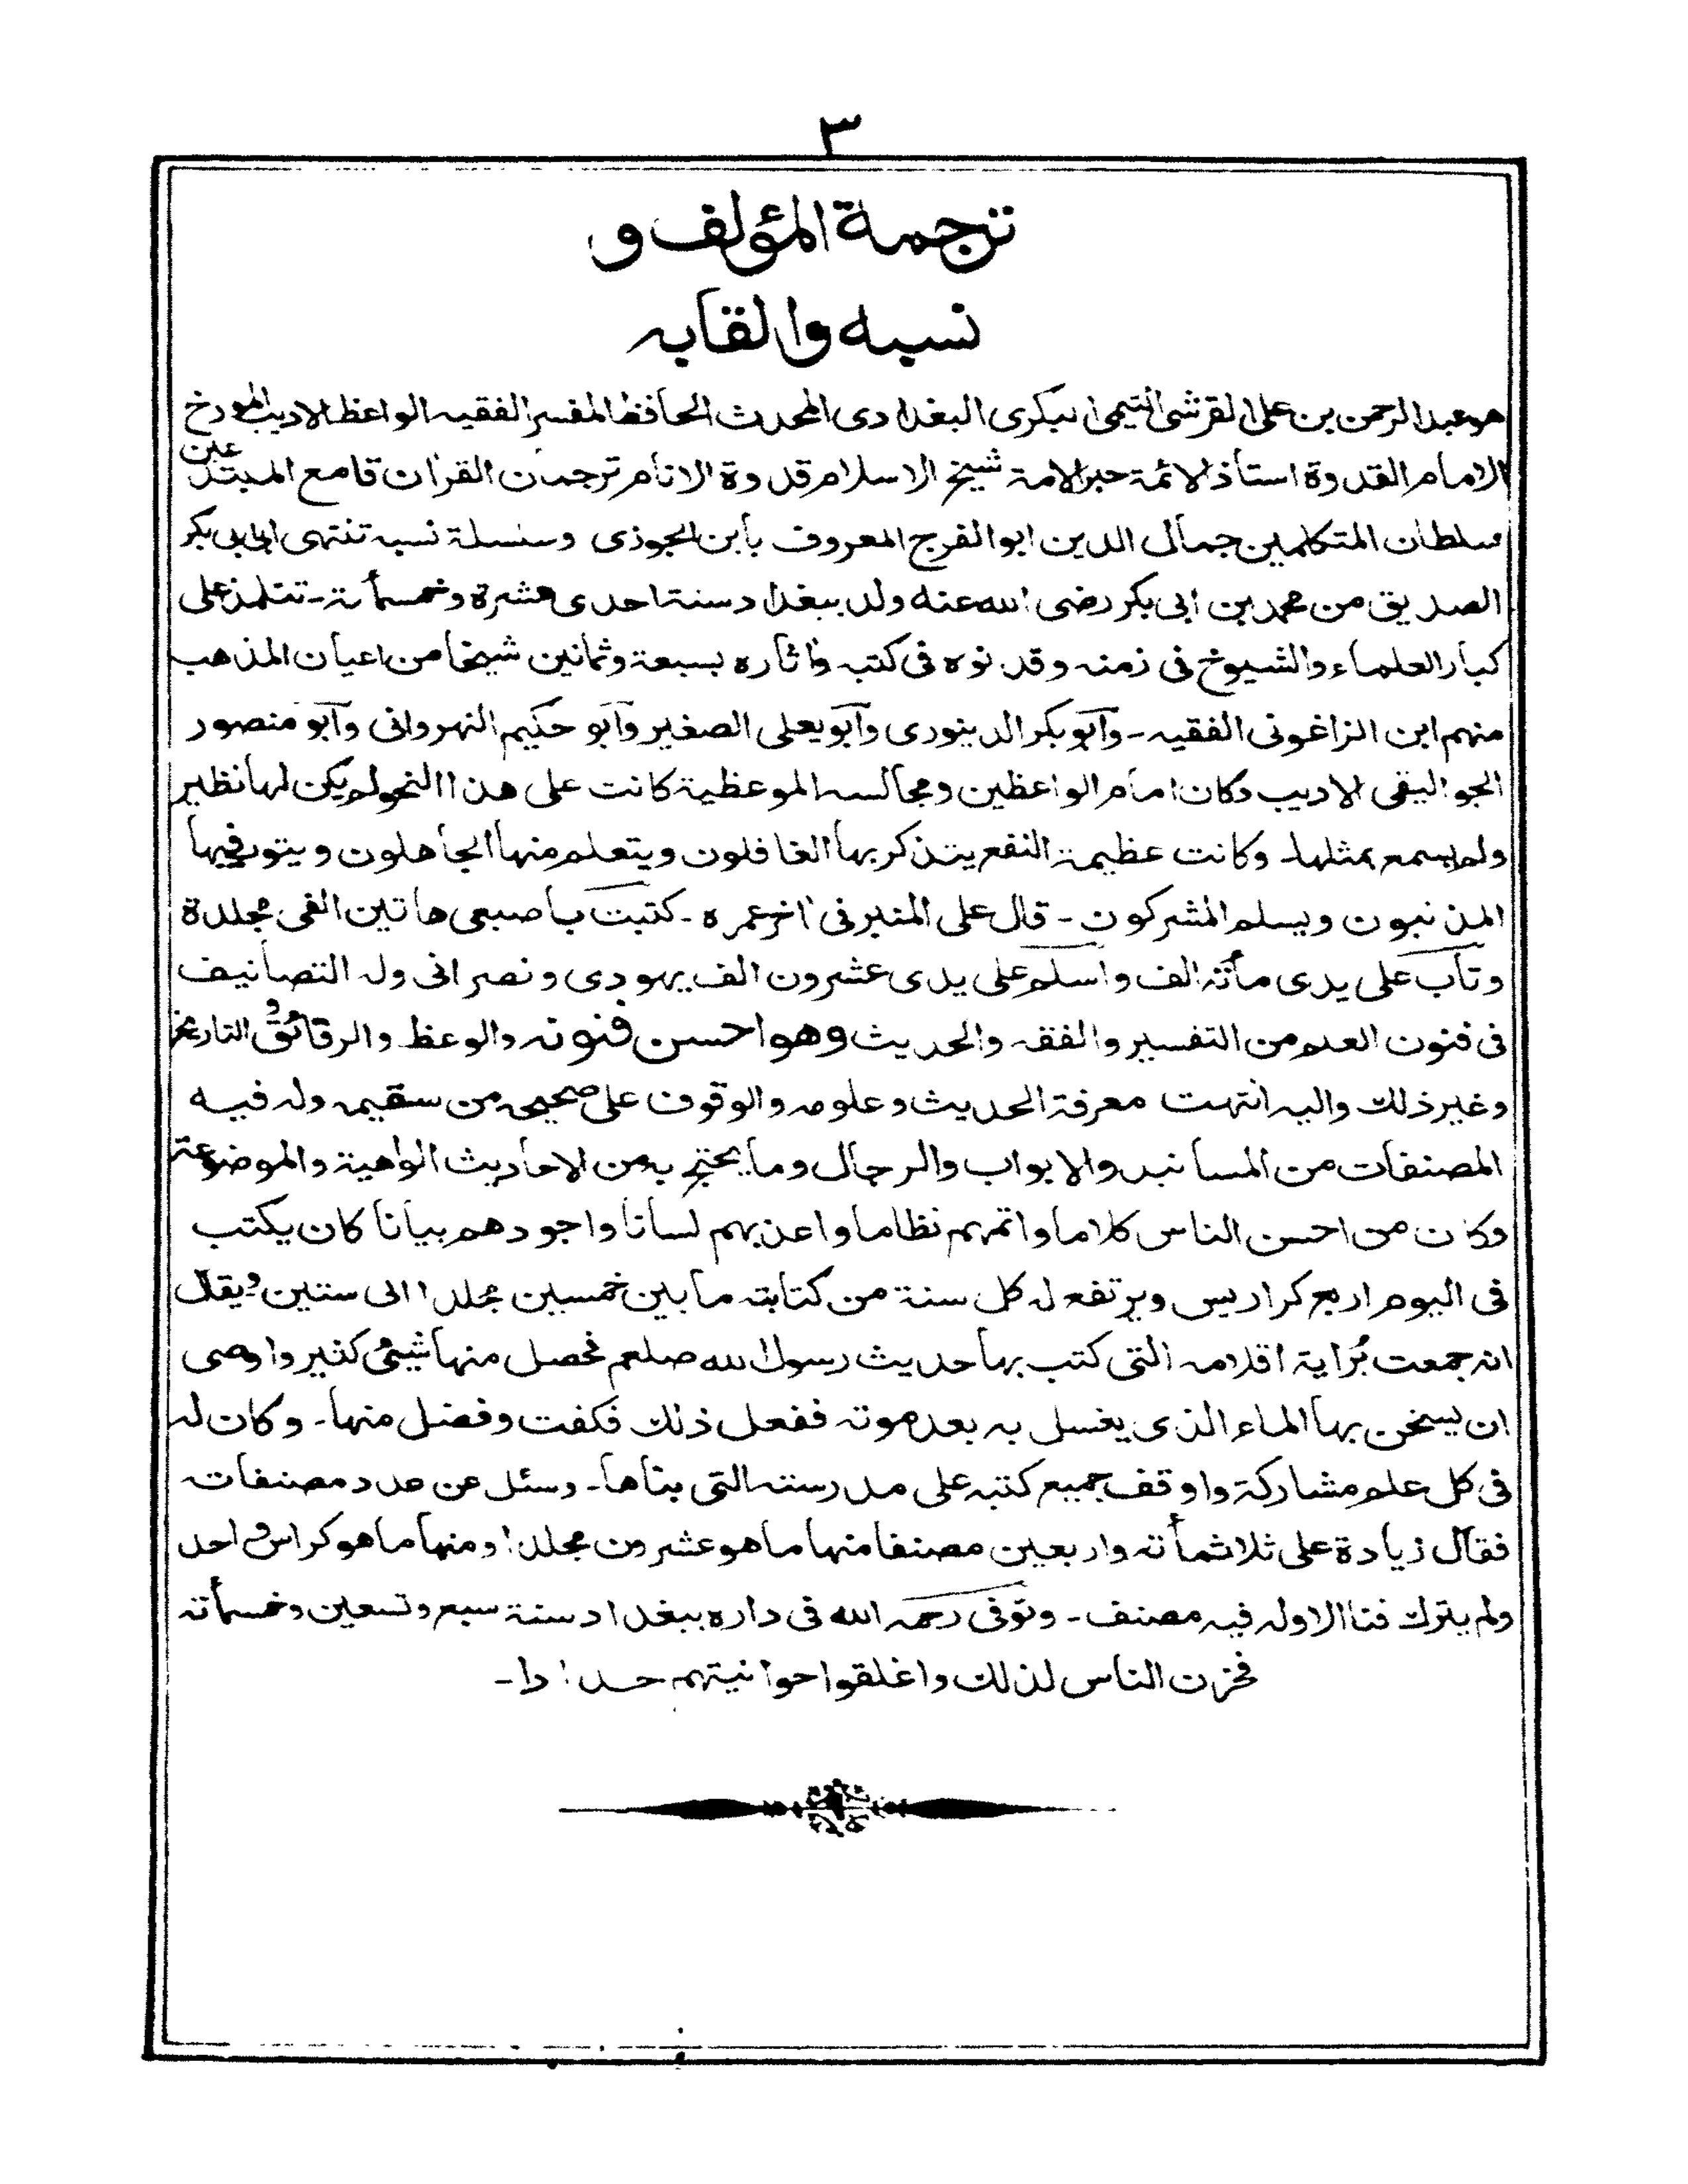 ٣
ترجمة المؤلف و
نسبه والقابه
هو عبد الرحمن بن على القرشى التيمى البكرى البغدادى المحدث الحافظ المفسر الفقيه الواعظ الاديب المورخ
الامام القدوة استاذ الائمة حبر الامة شيخ الاسلام قدوة الانام ترجمان القران قامع المبتدعين
سلطان المتكلمين جمال الدين ابو الفرج المعروف بابن الجوزى وسنسلة نسبه تنتهى الى ابى بكر
الصديق من محمد بن ابى بكر رضى الله عنه ولد ببغداد سنة احدى عشرة وخمسمأئة ـ تتلمذ على
كبار العلماء والشيوخ فى زمنه وقد نوه فى كتبه واثاره بسبعة وثمانين شيخا من اعيان المذهب
منهم ابن الزاغونى الفقيه ـ وابو بكر الدينورى وابو يعلى الصغير وابو حكيم النهروانى وابو منصور
الجواليقى الاديب وكان امام الواعظين ومجالسه الموعظية كانت على هذا النحو لم يكن لها نظير
ولم يسمع بمثلها ـ وكانت عظيمة النفع يتذكر بها الغافلون ويتعلم منها الجاهلون ويتوب فيها
المذنبون ويسلم المشركون ـ قال على المنبر فى اخر عمره ـ كتبت باصبعى هاتين الفى مجلدة
وتاب على يدى مأئة الف واسلم على يدى عشرون الف يهودى ونصرانى وله التصانيف
فى فنون العلم من التفسير والفقه والحديث وهو احسن فنونه والوعظ والرقائق والتاريخ
وغير ذلك واليه انتهت معرفة الحديث وعلومه والوقوف على صحيحه من سقيمه وله فيه
المصنفات من المسانيد والابواب والرجال وما يحتج به من الاحاديث الواهية والموضوعة
وكان من احسن الناس كلاما واتمهم نظاما واعذبهم لسانا واجودهم بيانا كان يكتب
فى اليوم اربع كراريس ويرتفع له كل سنة من كتابته ما بين خمسين مجلدا الى ستين ويقال
انه جمعت برُاية اقلامه التى كتب بها حديث رسول الله صلعم فحصل منها شيئ كثير واوصى
ان يسخن بها الماء الذى يغسل به بعد موته ففعل ذلك فكفت وفضل منها ـ وكان له
فى كل علم مشاركة واوقف جميع كتبه على مدرسته التى بناها ـ وسئل عن عدد مصنفاته
فقال زيادة على ثلاثمأئة واربعين مصنفا منها ما هو عشرون مجلدا ومنها ما هو كراس واحد
ولم يترك فنا الا وله فيه مصنف ـ وتوفى رحمه الله فى داره ببغداد سنة سبع وتسعين وخمسمأئة
فحزن الناس لذلك واغلقوا حوانيتهم حدادا ـ